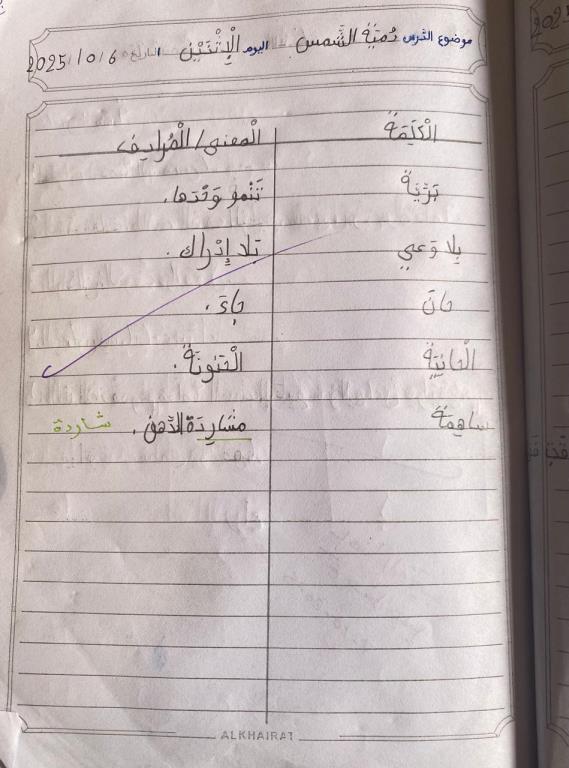 موضوع الدرس دُمْيَةُ الشَّمْسِ اليوم الْإِثْنَيْن التاريخ 2025/10/6
الْكَلِمَةُ الْمَعْنى/الْمُرادِف
بَرِّيَّةٌ تَنْمو وَحْدَها.
بِلا وَعي بَلا إِدْراك.
حانَ جاءَ.
الْحانِيَةُ الْحَنونَةُ.
ساهِمَةٌ مشارِدَة الذِّهن. شاردة
ALKHAIRAT